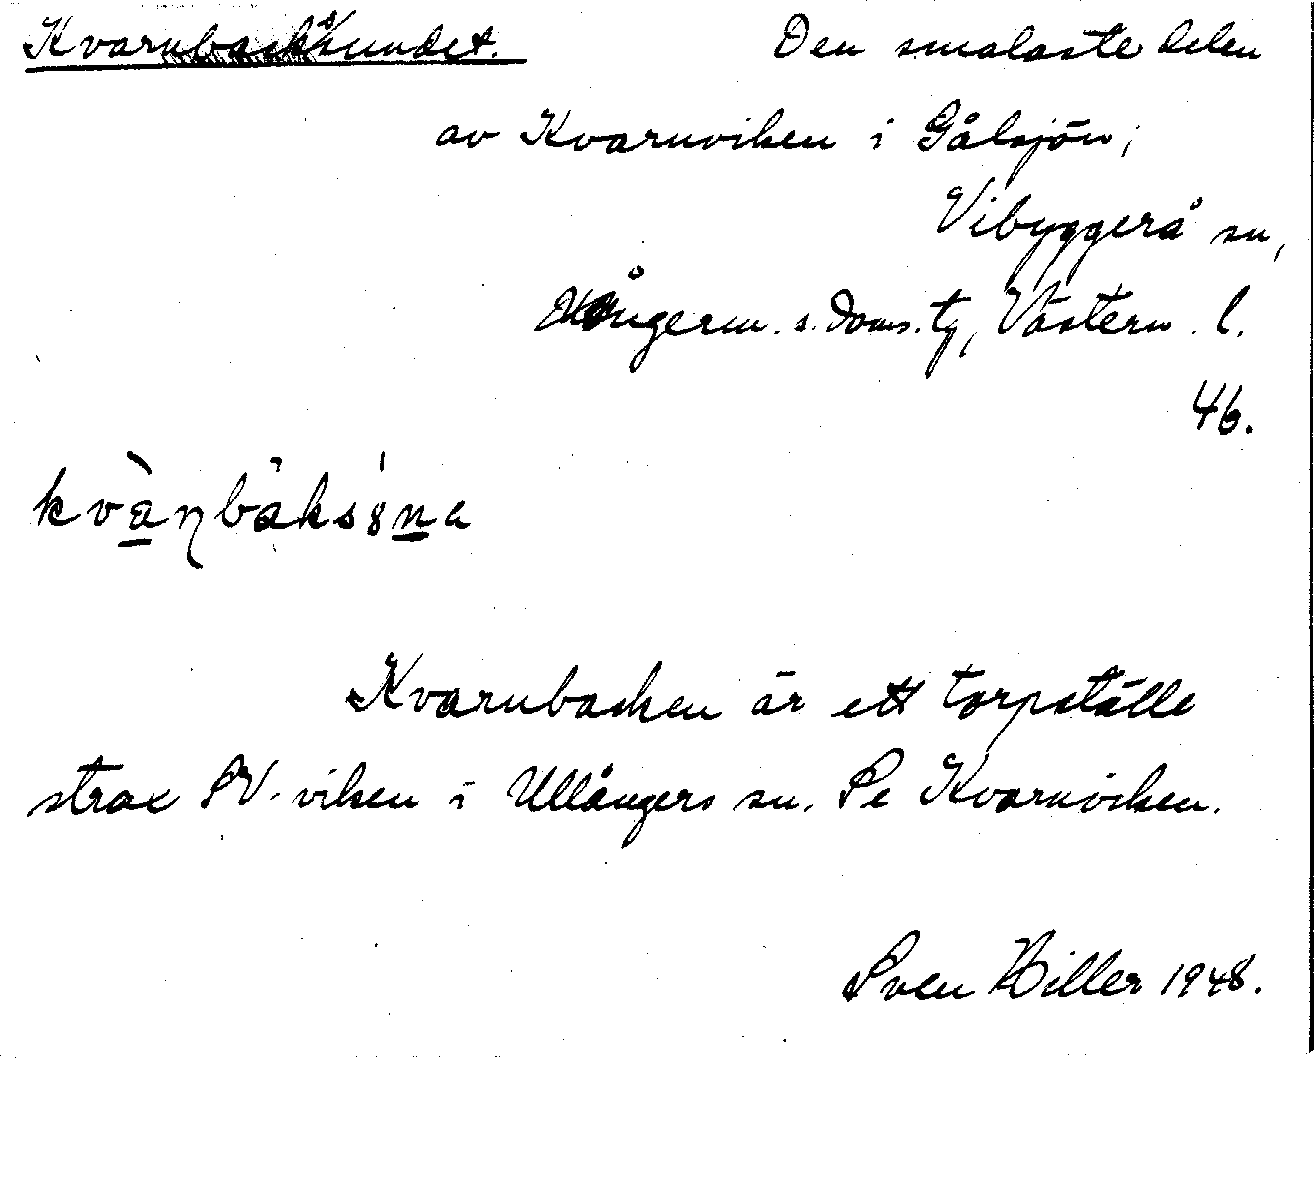 Kvarnbacksundet. Den smalaste delen
av Kvarnviken i Gålsjön,
Vibyggerå sn,
Ångerm. s. doms. tg, Västern. l.
46.
Kvarnbacken är ett torpställe
strax SV. viken i Ullångers sn. Se Kvarnviken.
Sven Hiller 1948.